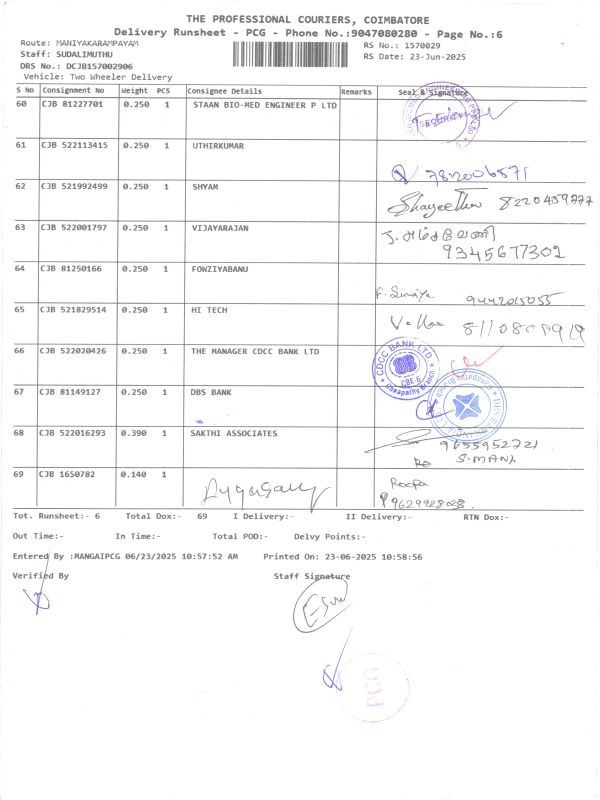 THE PROFESSIONAL COURIERS, COIMBATORE
Delivery Runsheet - PCG - Phone No.:9047080280 - Page No.:6
Route: MANIYAKARAMPAYAM
RS No.: 1570029
Staff: SUDALIMUTHU
RS Date: 23-Jun-2025
DRS No.: DCJB157002906
Vehicle: Two Wheeler Delivery
S No Consignment No Weight PCS Consignee Details Remarks Seal & Signature
60 CJB 81227701 0.250 1 STAAN BIO-MED ENGINEER P LTD
61 CJB 522113415 0.250 1 UTHIRKUMAR
7812006571
62 CJB 521992499 0.250 1 SHYAM
8220459777
63 CJB 522001797 0.250 1 VIJAYARAJAN
9345677302
64 CJB 81250166 0.250 1 FOWZIYABANU
9442015055
65 CJB 521829514 0.250 1 HI TECH
66 CJB 522020426 0.250 1 THE MANAGER CDCC BANK LTD
CDCC BANK LTD
CBE-6
Ganapathy Branch
67 CJB 81149127 0.250 1 DBS BANK
68 CJB 522016293 0.390 1 SAKTHI ASSOCIATES
9655952721
S.MANI
69 CJB 1650782 0.140 1
Roopa
Tot. Runsheet:- 6 Total Dox:- 69 I Delivery:- II Delivery:- RTN Dox:-
Out Time:- In Time:- Total POD:- Delvy Points:-
Entered By :MANGAIPCG 06/23/2025 10:57:52 AM Printed On: 23-06-2025 10:58:56
Verified By Staff Signature
PCG